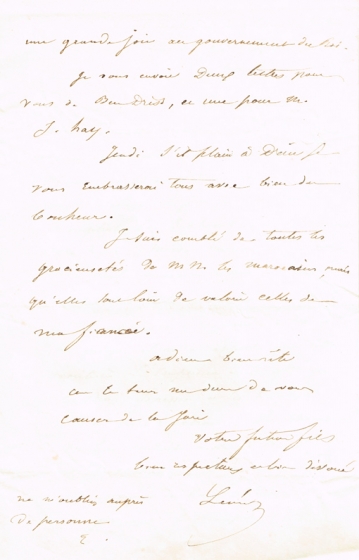 une grande joie au gouvernement du roi.
Je vous envoie Deux lettres pour
vous de Ben Driss, et une pour M.
J. hay.
Jeudi S'il plait à Dieu je
vous embrasserai tous avec bien du
bonheur.
Je suis comblé de toutes les
gracieusetés de MM. les marocains, mais
qu'elles sont loin de valoir celles de
ma fiancée.
adieu bien vite
causer de la joie
votre futur fils
bien respectueux et bien dévoué
ne m'oubliez auprès
De personne